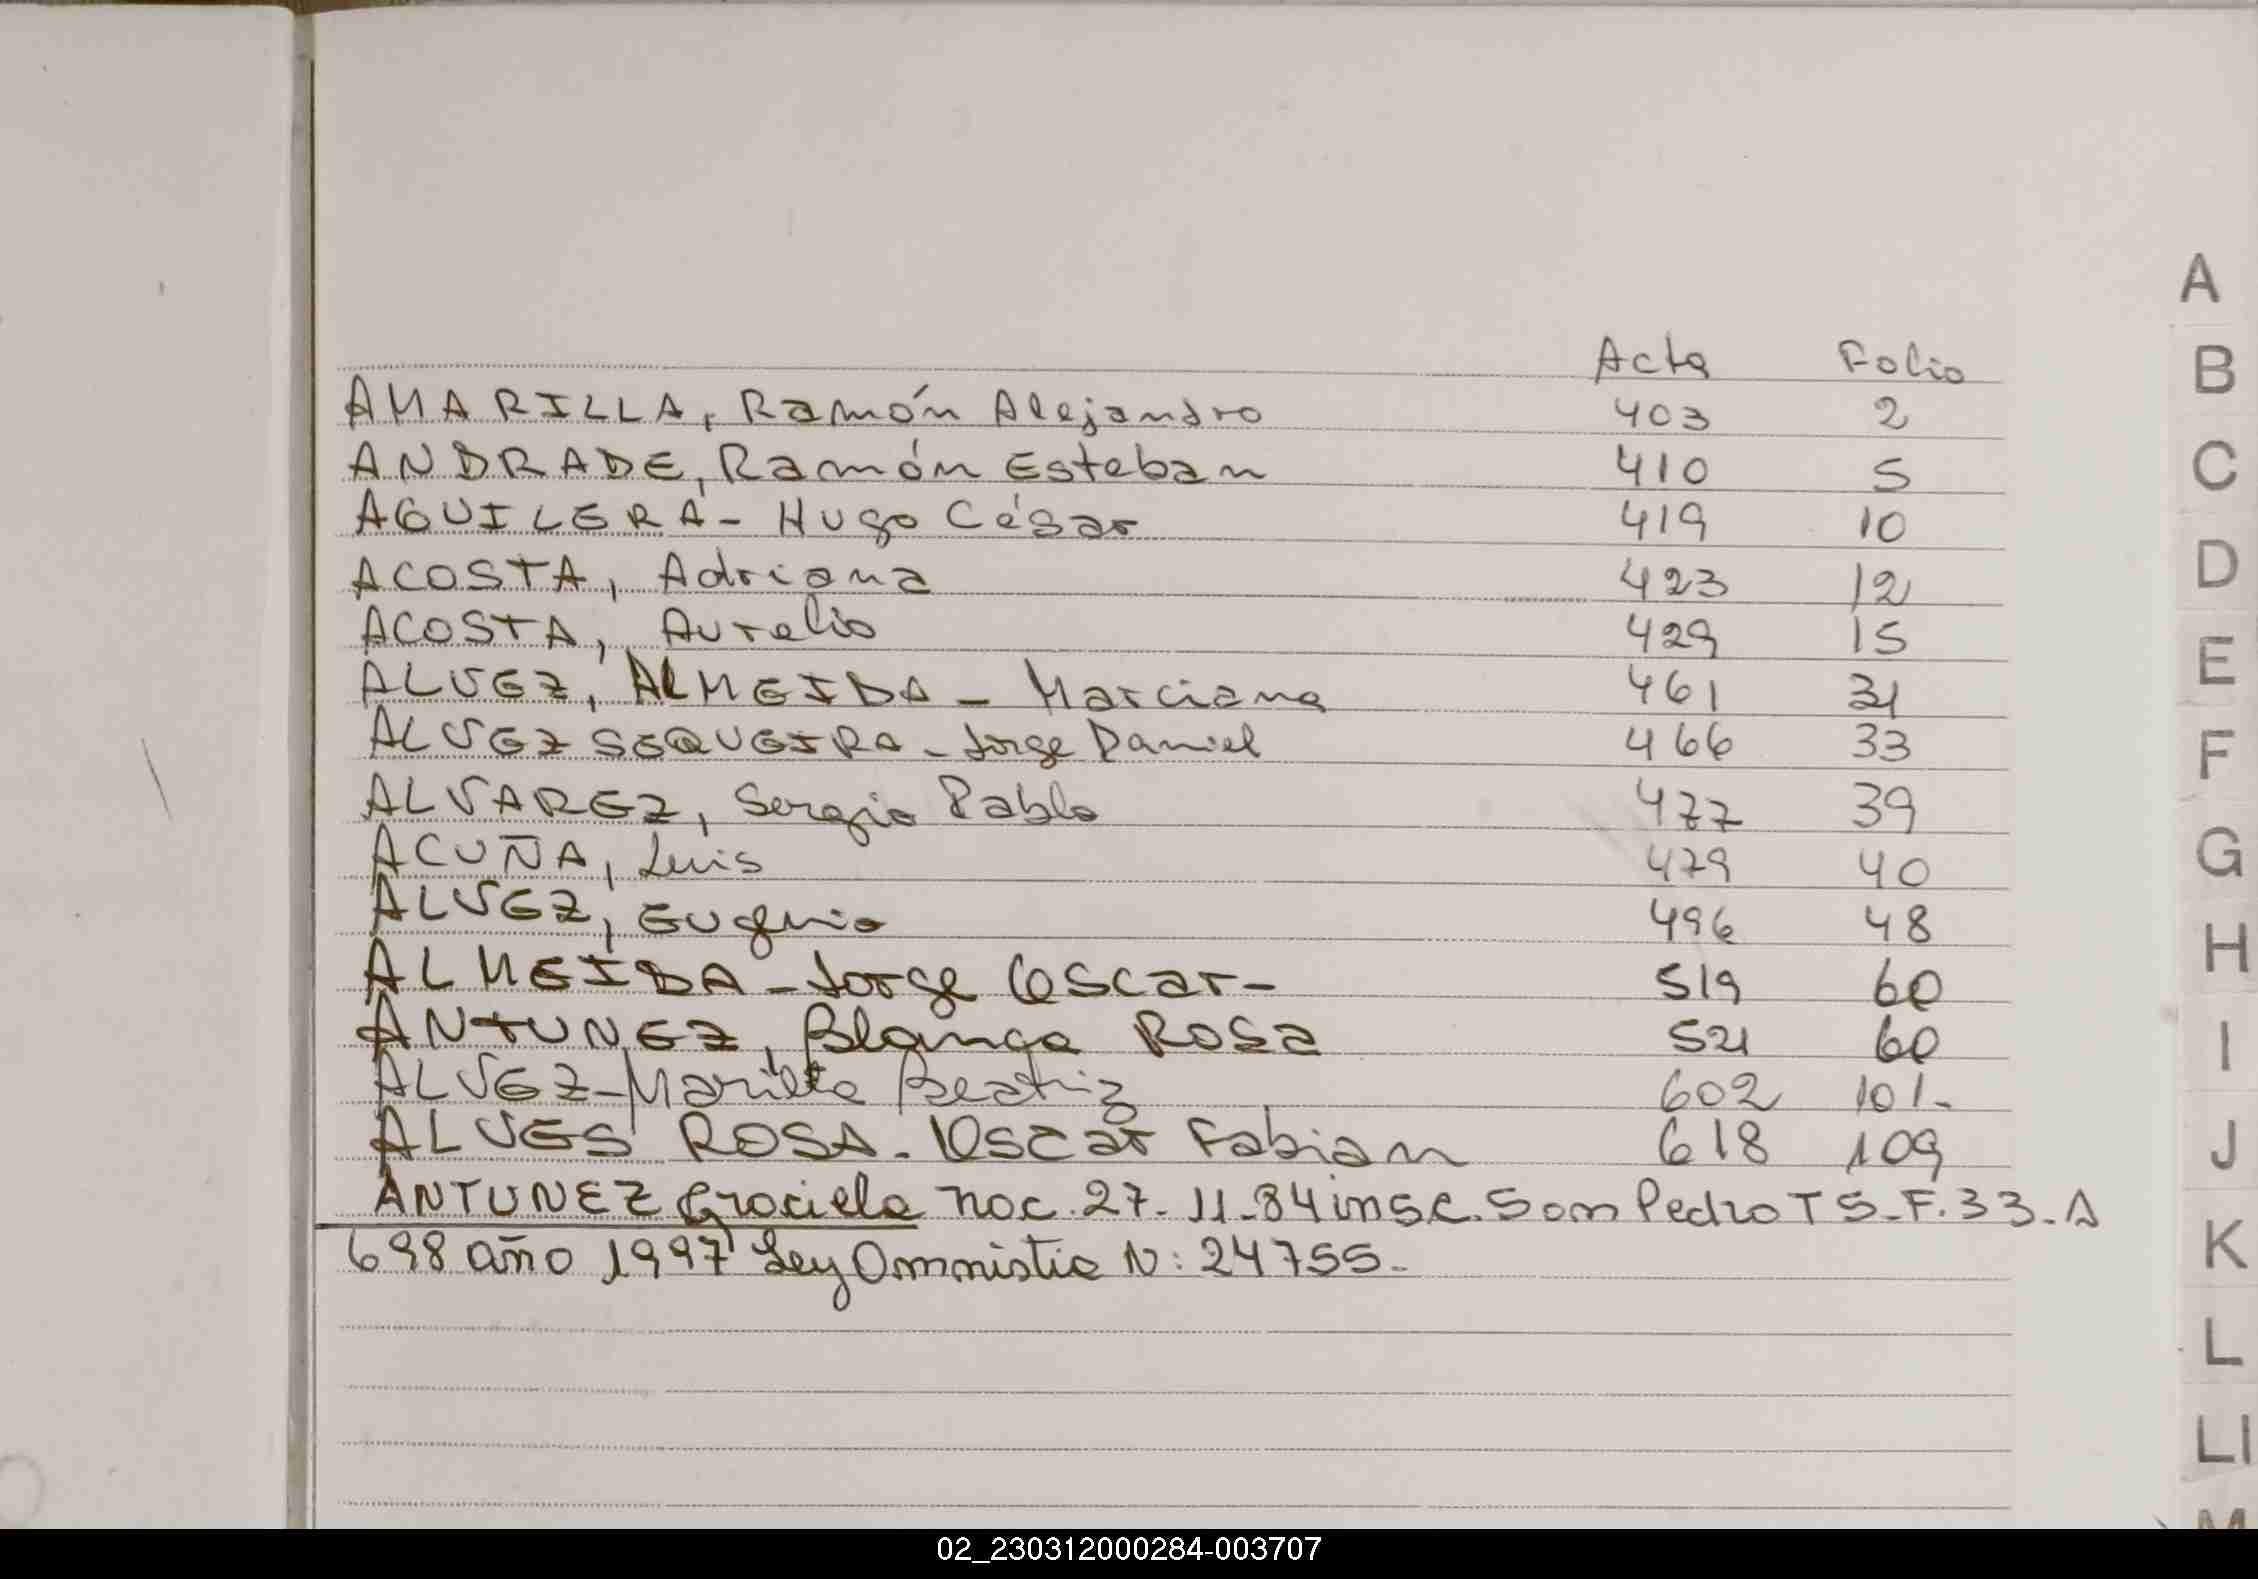 Acta Folio
AMARILLA, Ramón Alejandro 403 2
ANDRADE, Ramón Esteban 410 5
AGUILERA - Hugo César 419 10
ACOSTA, Adriana 423 12
ACOSTA, Aurelio 429 15
ALVEZ, ALMEIDA - Marciana 461 31
ALVEZ SEQUEIRA - Jorge Daniel 466 33
ALVAREZ, Sergio Pablo 477 39
ACUÑA, Luis 479 40
ALVEZ, Eugenio 496 48
ALMEIDA - Jorge Oscar - 519 60
ANTUNEZ, Blanca Rosa 521 60
ALVEZ - Beatriz 602 101-
ALVES ROSA - Oscar Fabian 618 109
ANTUNEZ Graciela nac. 27-11-84 insc. San Pedro T 5-F.33-A
698 año 1997 Ley Amnistia N: 24755-
A
B
C
D
E
F
G
H
I
J
K
L
Ll
M
02_230312000284-003707